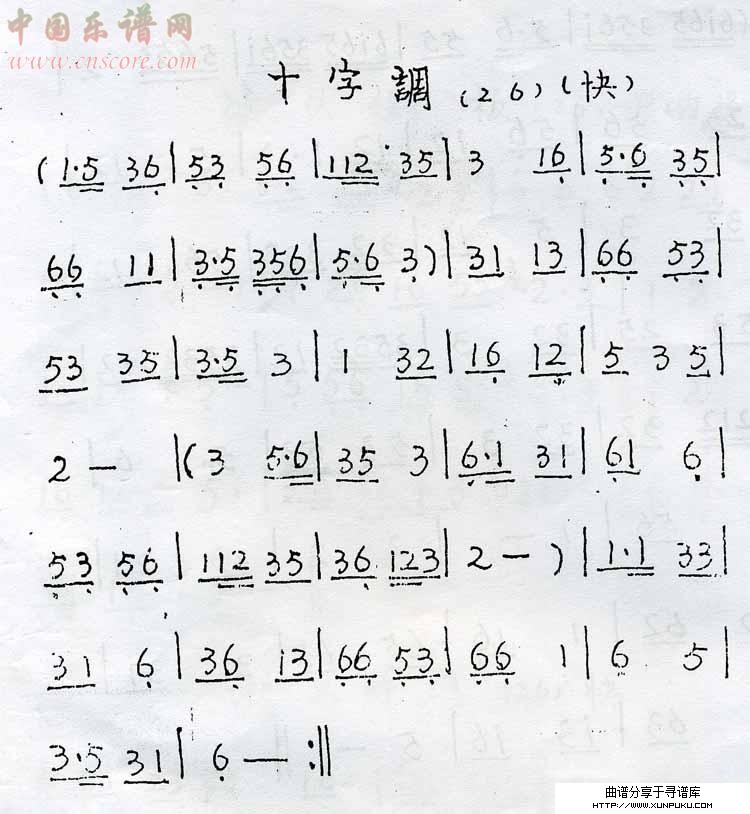 中国乐谱网
www.cnscore.com
十字調 (26) (快)
(1·5 36 | 53 56 | 112 35 | 3 16 | 5·6 35 |
66 11 | 3·5 356 | 5·6 3) | 31 13 | 66 53 |
53 35 | 3·5 3 | 1 32 | 16 12 | 5 3 5 |
2 — | (3 5·6 | 35 3 | 6·1 31 | 61 6 |
53 56 | 112 35 | 36 123 | 2 — ) | 1·1 33 |
31 6 | 36 13 | 66 53 | 66 1 | 6 5 |
3·5 31 | 6 — :||
曲谱分享于寻谱库
HTTP://WWW.XUNPUKU.COM